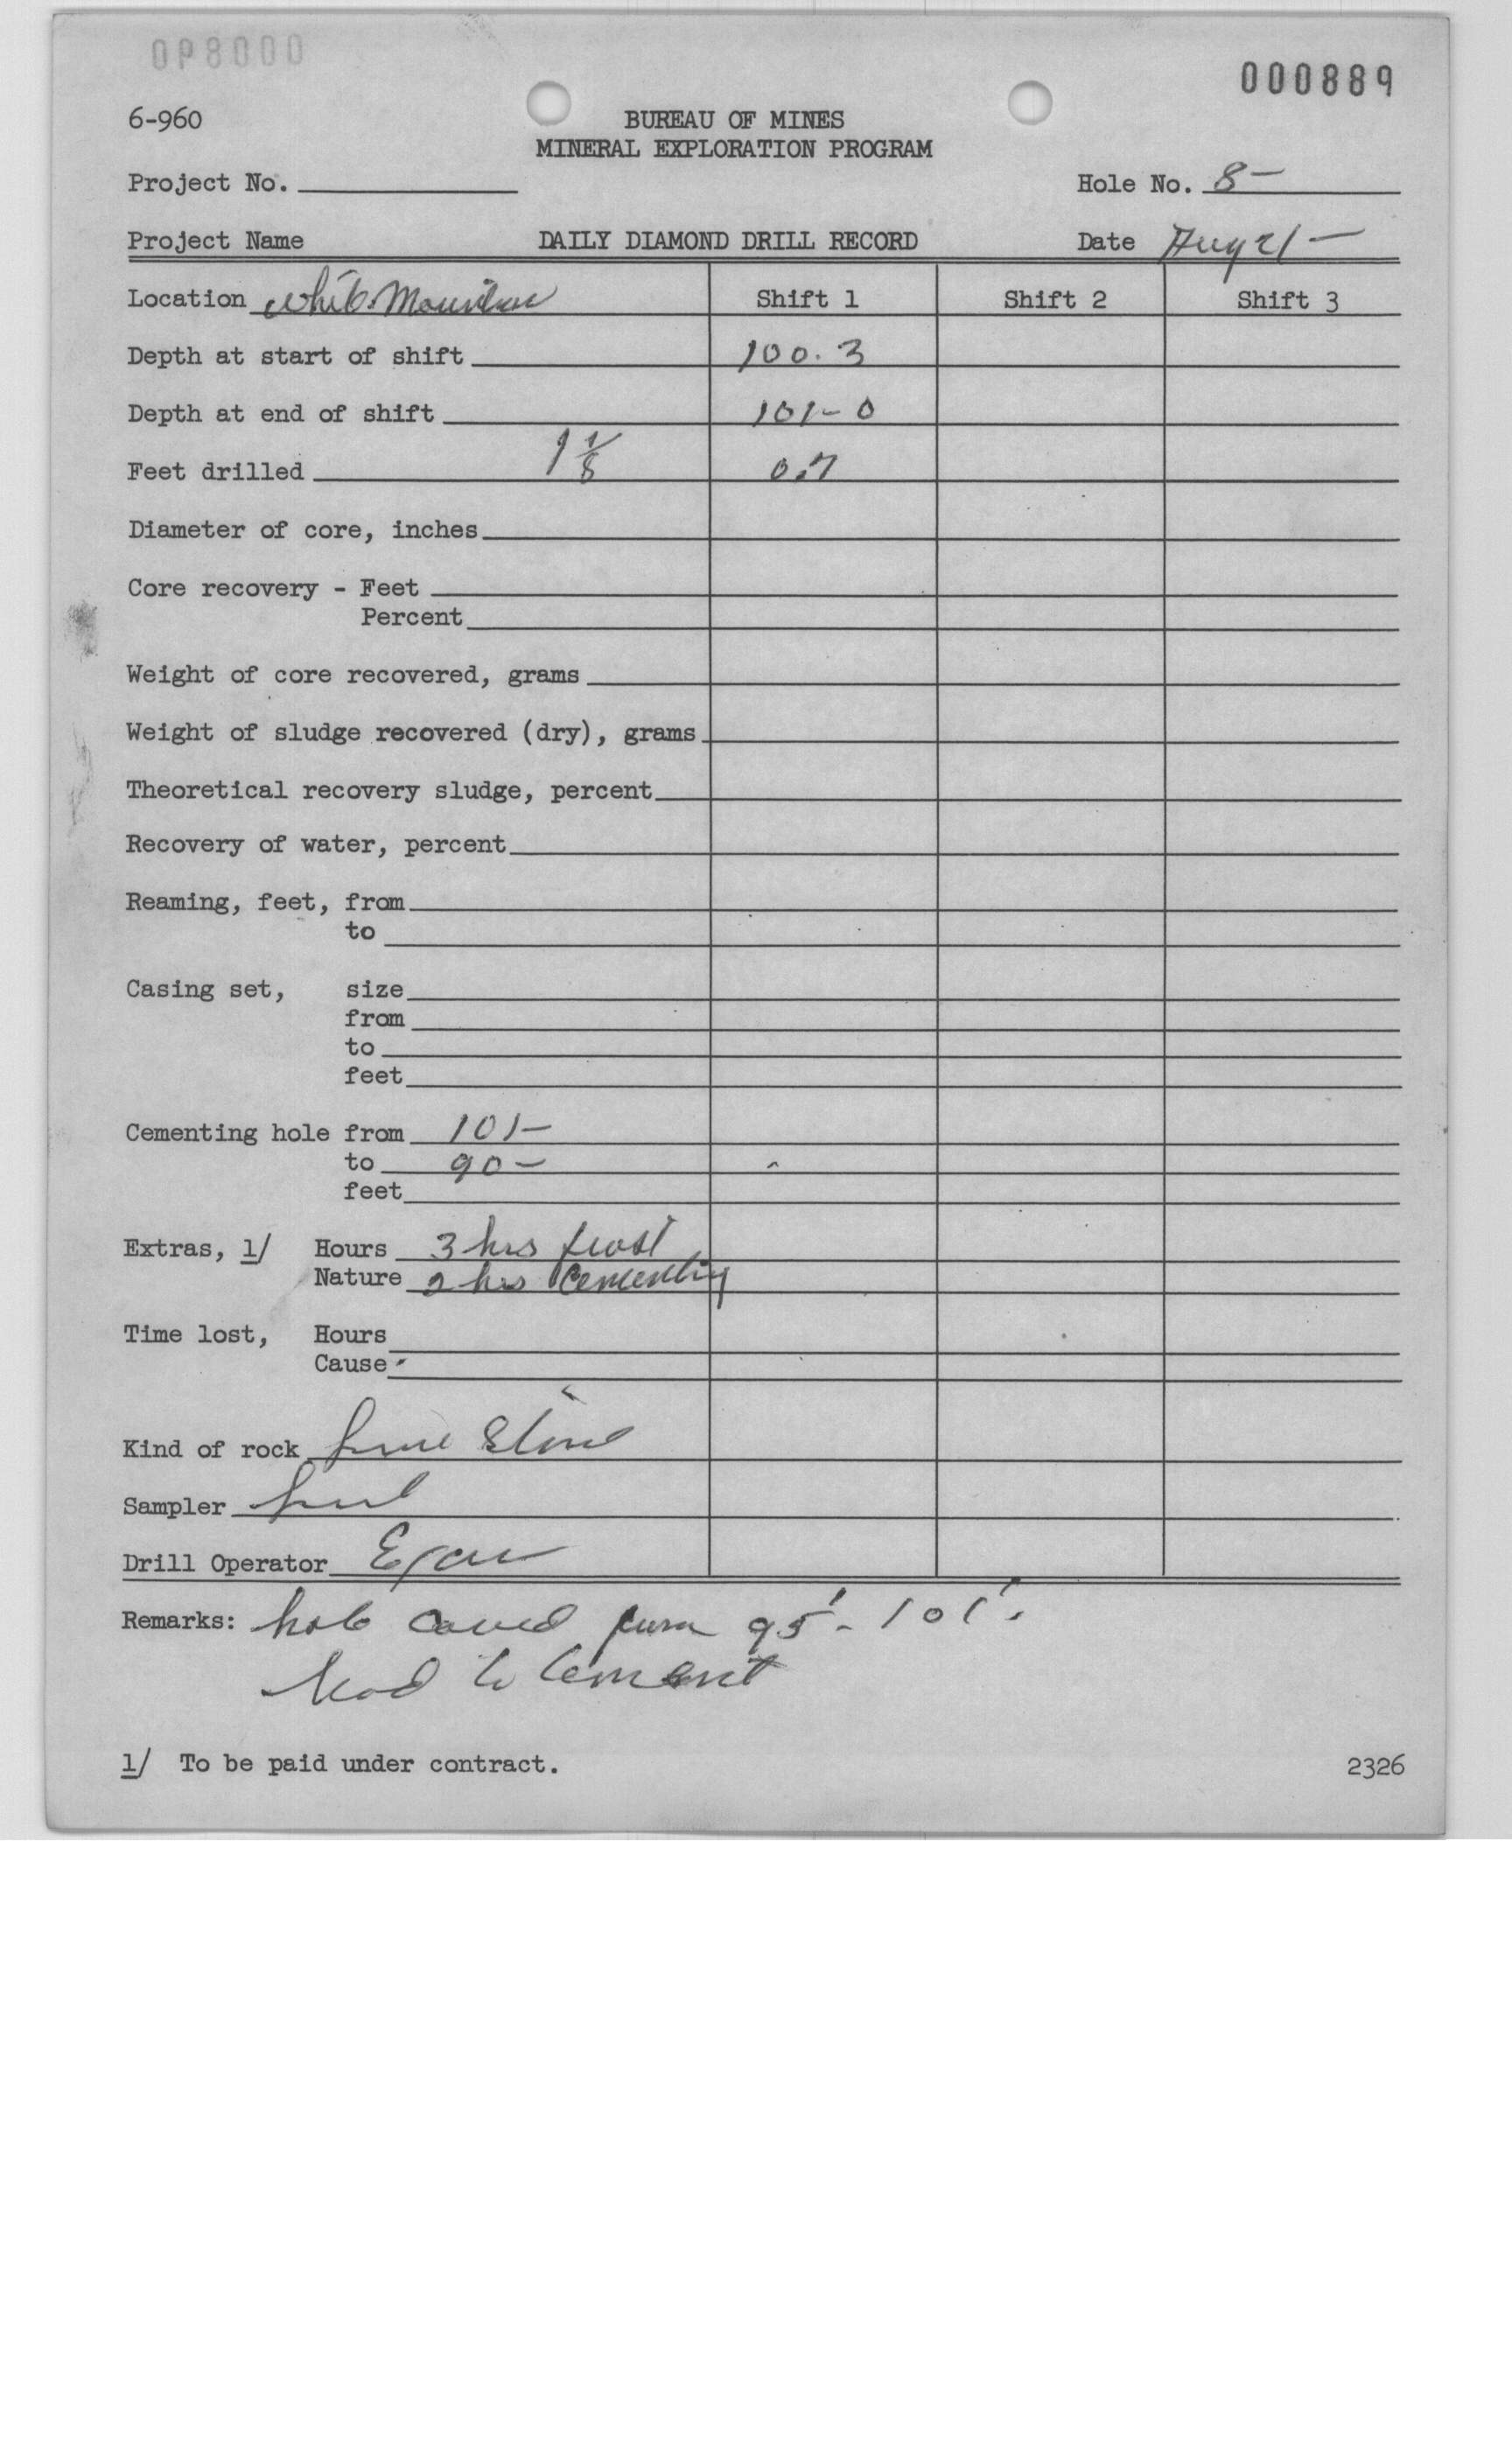 000889
6-960
BUREAU OF MINES
MINERAL EXPLORATION PROGRAM
Project No.
Hole No. 8-
Project Name DAILY DIAMOND DRILL RECORD Date Aug 21-
Location White Mountain Shift 1 Shift 2 Shift 3
Depth at start of shift 100.3
Depth at end of shift 101-0
Feet drilled 1 1/8 0.7
Diameter of core, inches
Core recovery - Feet
Percent
Weight of core recovered, grams
Weight of sludge recovered (dry), grams
Theoretical recovery sludge, percent
Recovery of water, percent
Reaming, feet, from
to
Casing set, size
from
to
feet
Cementing hole from 101-
to 90-
feet
Extras, 1/ Hours 3 hrs
Nature 2 hrs Cementing
Time lost, Hours
Cause
Kind of rock Lime Stone
Sampler
Drill Operator Egan
Remarks: hole caved from 95'-101'.
had to Cement
1/ To be paid under contract.
2326